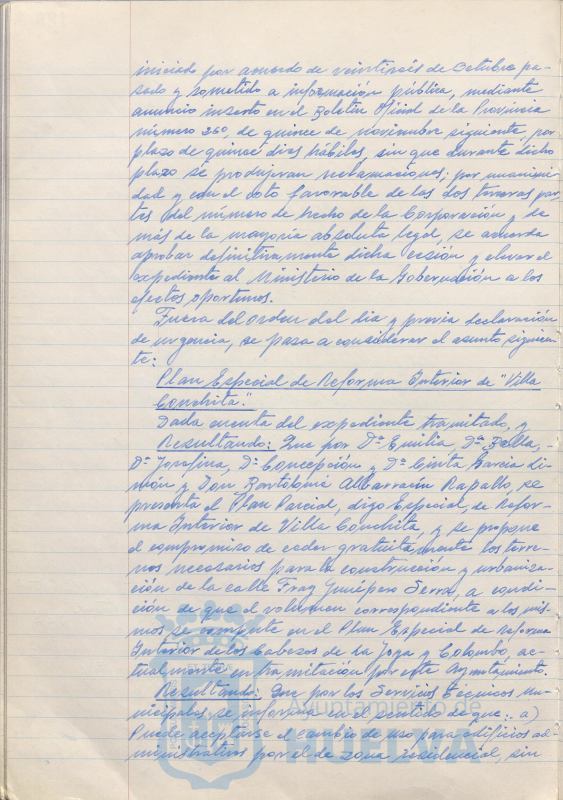 iniciado por acuerdo de veintiséis de Octubre pa-
sado y sometido a información pública, mediante
anuncio inserto en el Boletín Oficial de la Provincia
número 260, de quince de noviembre siguiente, por
plazo de quince días hábiles, sin que durante dicho
plazo se produjeran reclamaciones; por unanimi-
dad y con el voto favorable de las dos terceras par-
tes del número de hecho de la Corporación y de
más de la mayoria absoluta legal, se acuerda
aprobar definitivamente dicha cesión y elevar el
expediente al Ministerio de la Gobernación a los
efectos oportunos.
Fuera del orden del dia y previa declaración
de urgencia, se pasa a considerar el asunto siguien-
te:
Plan Especial de Reforma Interior de "Villa
Conchita".
Dada cuenta del expediente tramitado, y
Resultando: Que por Dª Emilia, Dª Bella, -
Dª Josefina, Dª Concepción y Dª Cinta Garcia Li-
món y Don Bartolomé Albarracín Rapallo, se
presenta el Plan Parcial, digo Especial, de Refor-
ma Interior de Villa Conchita, y se propone
el compromiso de ceder gratuitamente los terre-
nos necesarios para la construcción y urbaniza-
ción de la calle Fray Junípero Serra, a condi-
ción de que el volumen correspondiente a los mis-
mos se compute en el Plan Especial de Reforma
Interior de los Cabezos de La Joya y Colombo, ac-
tualmente en tramitación por este Ayuntamiento.
Resultando: Que por los Servicios Técnicos mu-
nicipales, se informa en el sentido de que: a)
Puede aceptarse el cambio de uso para edificios ad-
ministrativos por el de zona residencial, sin
Ayuntamiento de
HUELVA